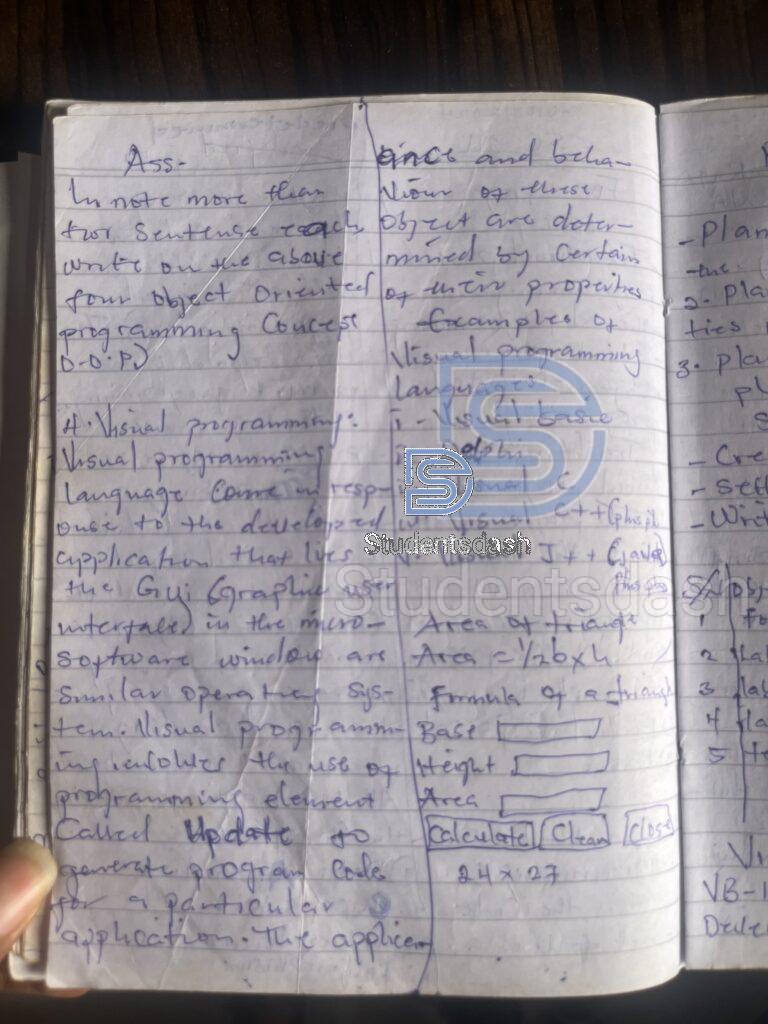 Ass-
In note more than
two Sentense each
write on the above
four object Oriented
programming Concese
O.O.P)
4. Visual programming:
Visual programming
language Come in resp-
onse to the developed
application that lies
the Gui (Graphic user
interface) in the micro-
software window are
Similar operating Sys-
tem. Visual programm-
ing involves the use of
programming element
Called Update to
generate program Code
for a particular
application. The applica-
ance and beha-
viour of these
object are deter-
mined by Certain
of their properties
Examples of
Visual programming
languages
i - Visual basic
Delphi
Visual C
Visual C++ (
Visual J++ (
Area of triangle
Area = 1/2 b x h
formula of a triangle
Base
Height
Area
Calculate Clear Close
24 x 27
- Plan
2. Pla
ties
3. Pla
pl
S
- Cre
- Set
- Writ
S/N Obj
1 fo
2 la
3 la
4 la
5 te
Vi
VB-1
Deve
Studentsdash
Studentsdash